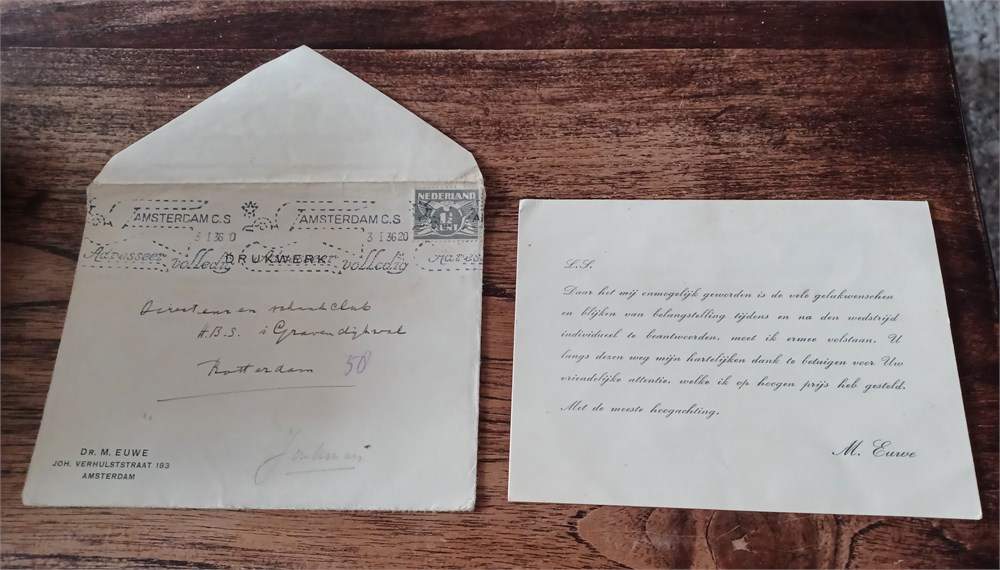 NEDERLAND
1½
CENT
AMSTERDAM C.S
AMSTERDAM C.S
3 I 36 20
3 I 36 20
Adresseer volledig
Adresseer volledig
Adres
DRUKWERK
schaakclub
H.B.S. 's Gravendijkwal
Rotterdam 58
DR. M. EUWE
JOH. VERHULSTSTRAAT 193
AMSTERDAM
L.S.
Daar het mij onmogelijk geworden is de vele gelukwenschen
en blijken van belangstelling tijdens en na den wedstrijd
individueel te beantwoorden, moet ik ermee volstaan, U
langs dezen weg mijn hartelijken dank te betuigen voor Uw
vriendelijke attentie, welke ik op hoogen prijs heb gesteld.
Met de meeste hoogachting,
M. Euwe